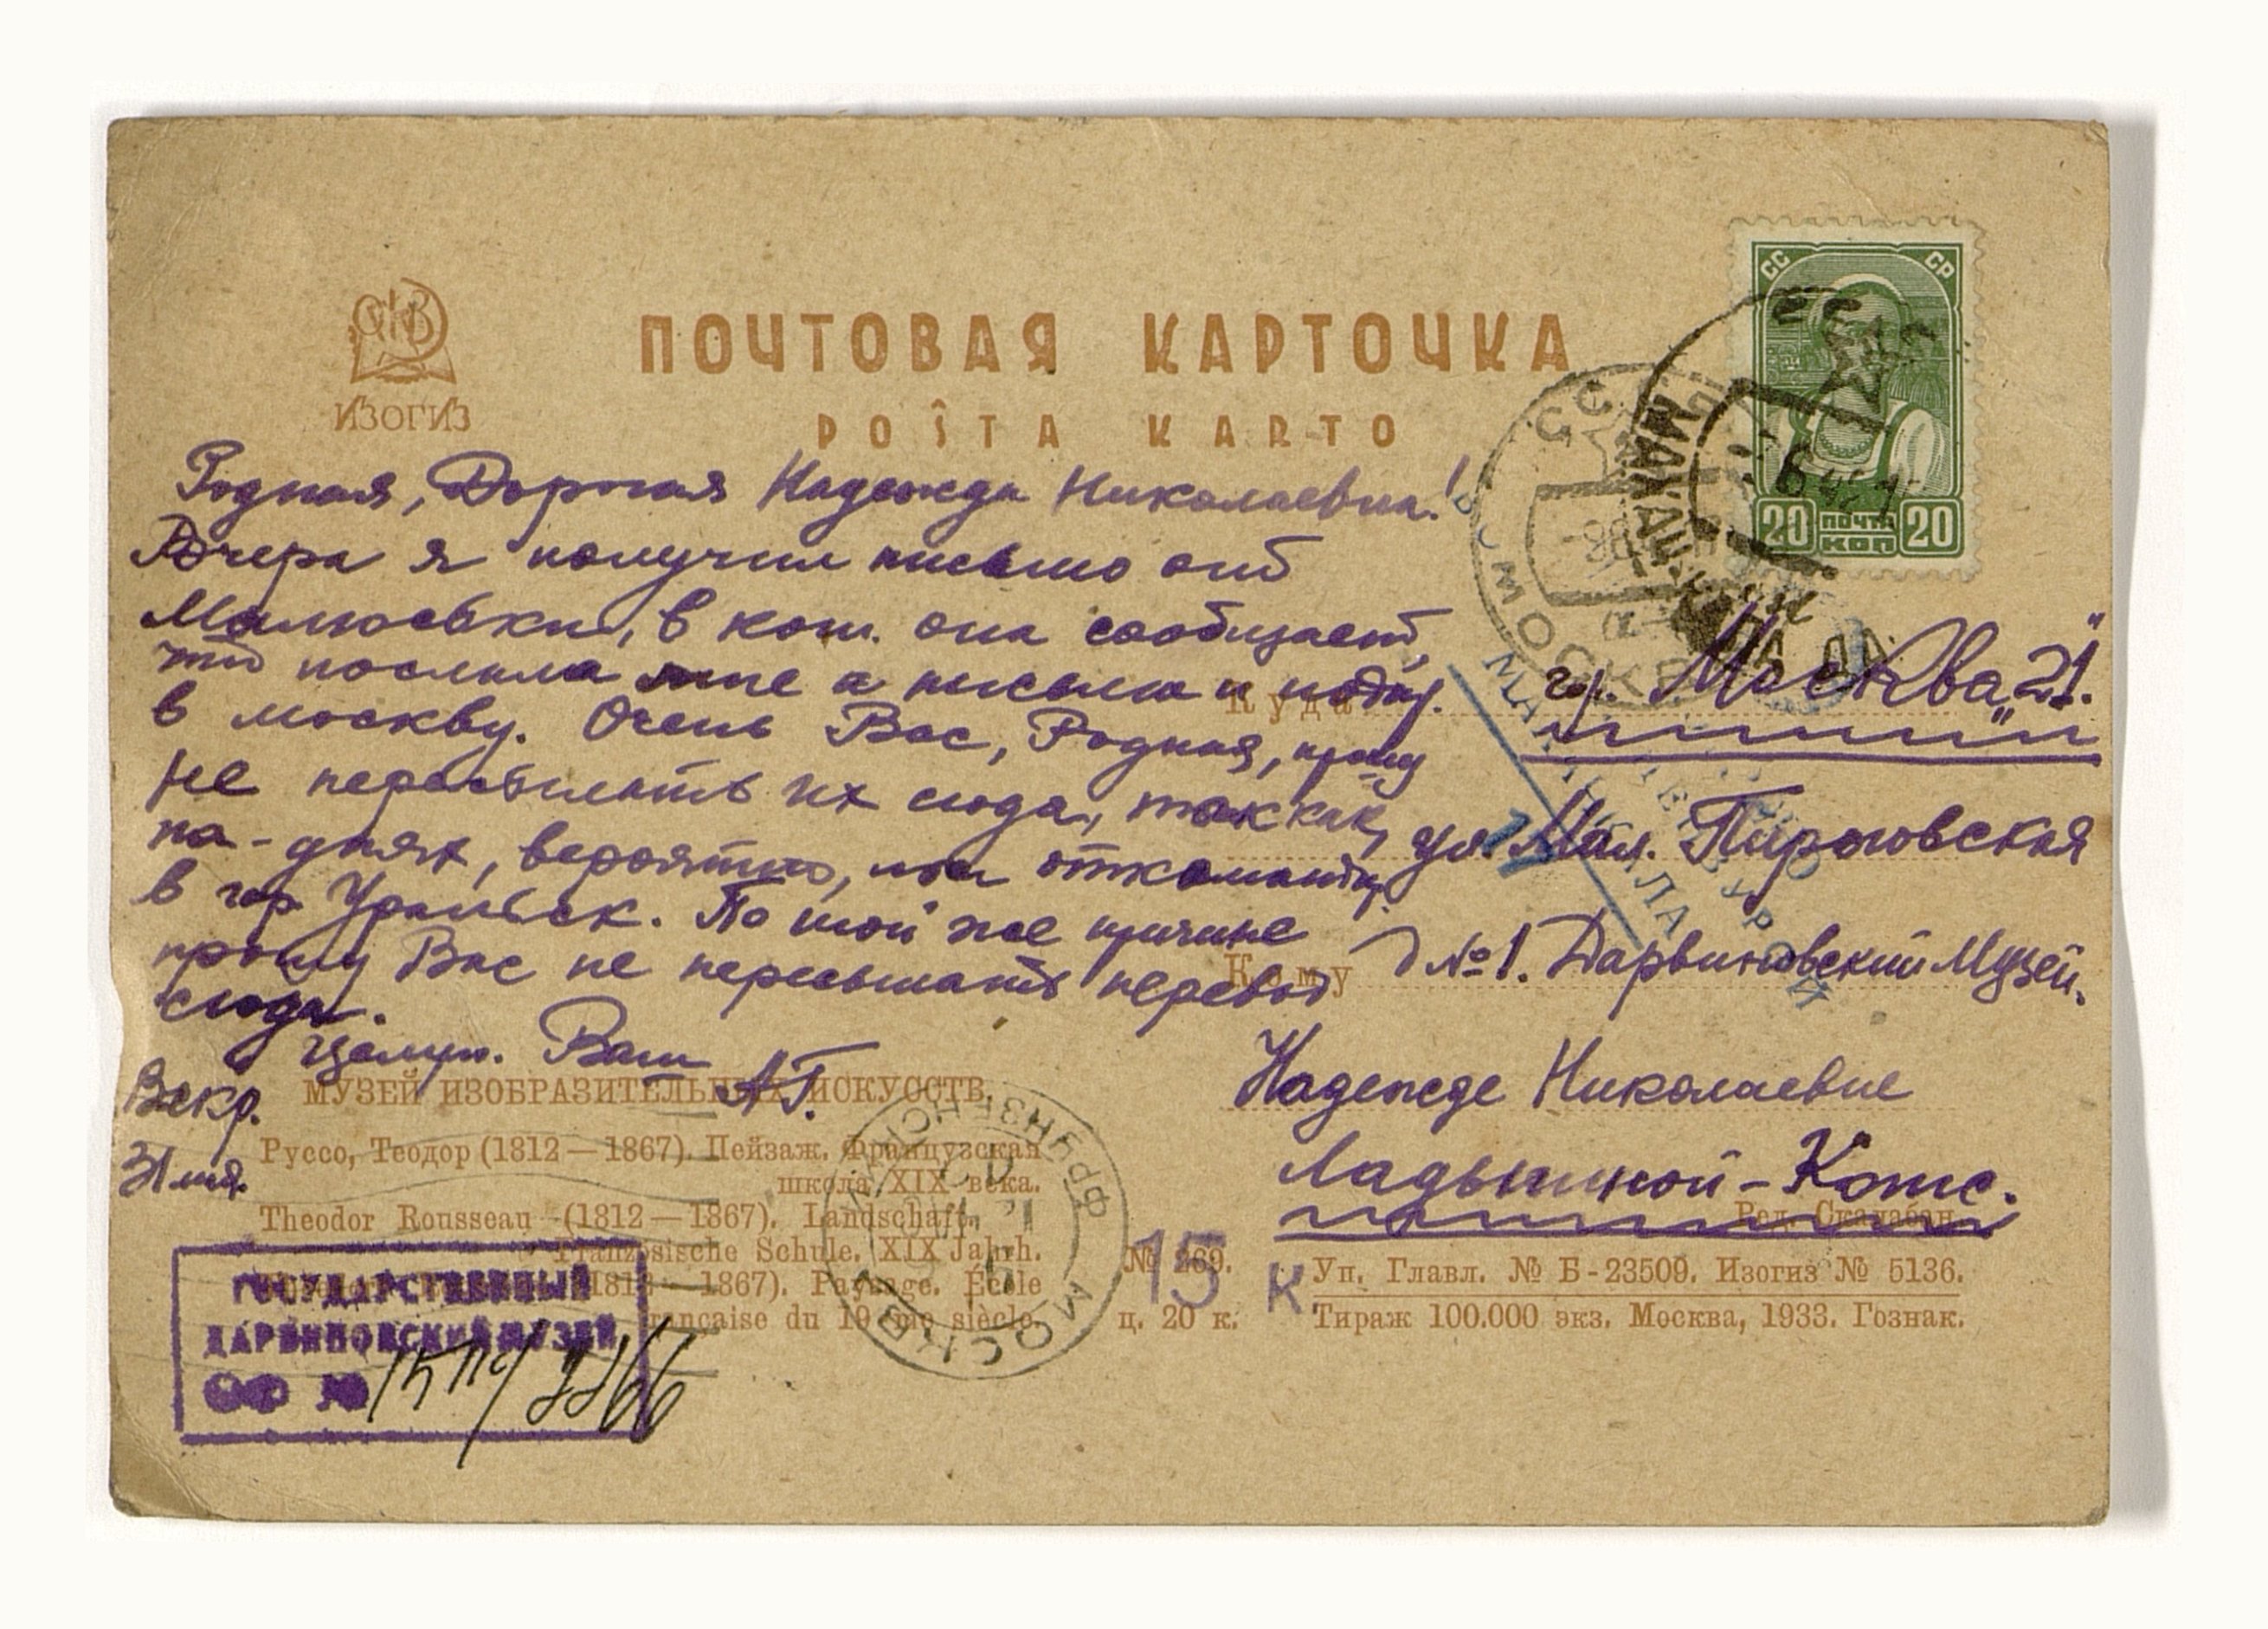 ИЗОГИЗ
ПОЧТОВАЯ КАРТОЧКА
POŜTA KARTO
СС СР
20 ПОЧТА 20
КОП
Родная, Дорогая Надежда Николаевна!
Вчера я получил письмо от
в кот. она сообщает,
что послала мне а письма и
в москву. Очень Вас, Родная, прошу
не пересылать их сюда, так как,
на-днях, вероятно, нас
в гор. Уральск. По той же причине
прошу Вас не пересылать перевод
сюда.
Целую. Ваш АГ.
Вскр.
31 мая.
Куда
гор. "Москва 21."
ул. Мал. Пироговская
д №1. Дарвиновский Музей.
Кому
Надежде Николаевне
Ладыгиной-Котс.
МУЗЕЙ ИЗОБРАЗИТЕЛЬНЫХ ИСКУССТВ.
Руссо, Теодор (1812—1867). Пейзаж. Французская
школа XIX века.
Theodor Rousseau (1812—1867). Landschaft.
Französische Schule. XIX Jahrh.
(1812—1867). Paysage. École
française du 19 me siècle.
№ 269.
ц. 20 к.
15 к
Ред. Скалабан.
Уп. Главл. № Б-23509. Изогиз № 5136.
Тираж 100.000 экз. Москва, 1933. Гознак.
МОСКВА
ГОСУДАРСТВЕННЫЙ
ДАРВИНОВСКИЙ МУЗЕЙ
ОФ №